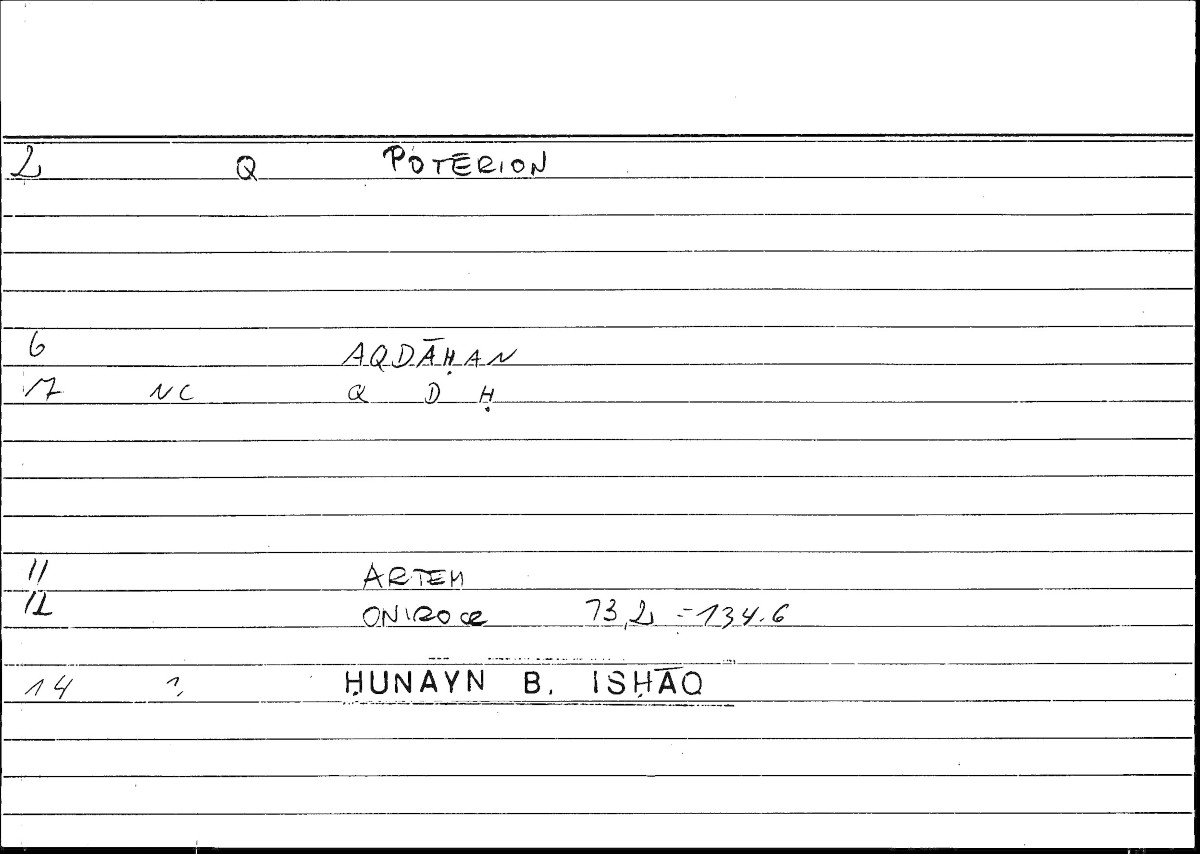 2 Q POTERION
6 AQDĀḤAN
17 NC Q D Ḥ
11 ARTEM
12 ONIROCR 73,2 = 134.6
14 ? ḤUNAYN B. ISḤĀQ